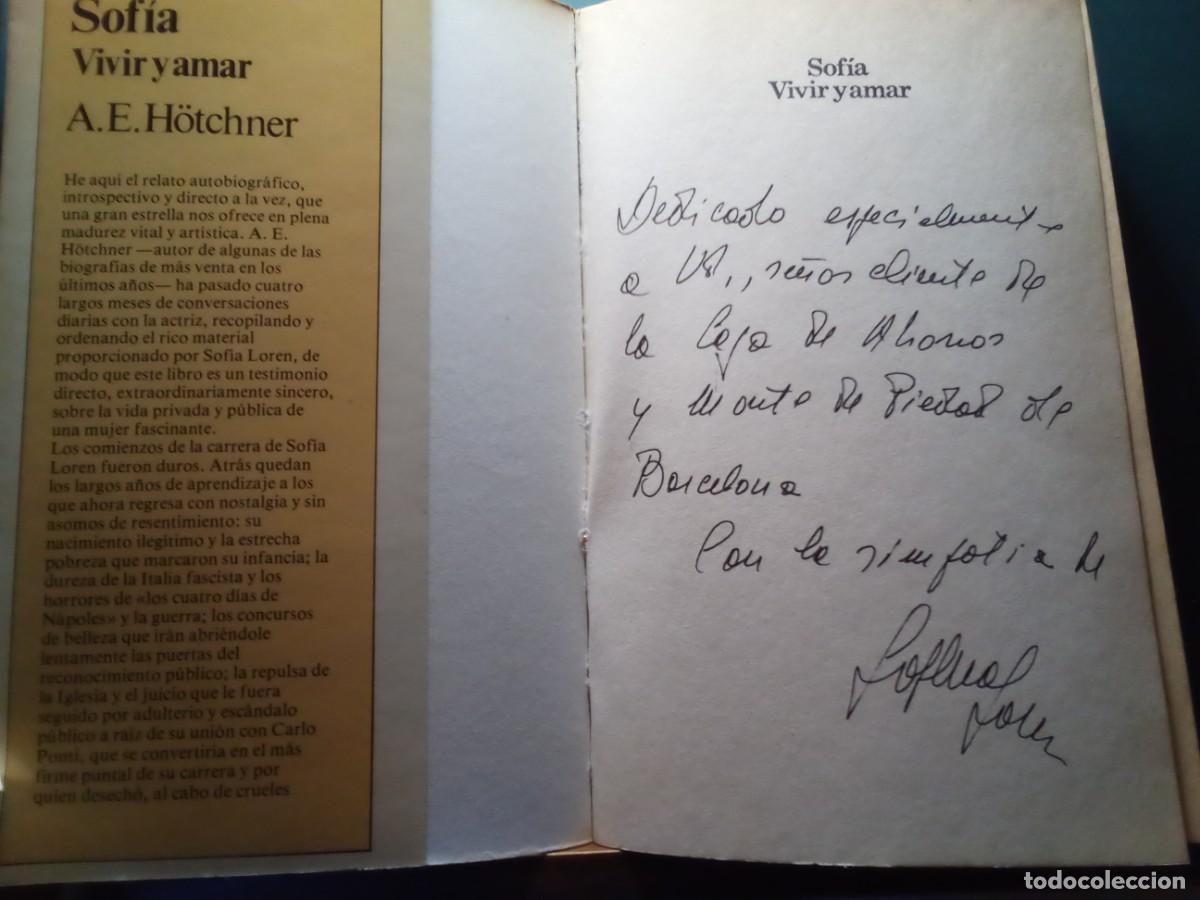 Sofía
Vivir y amar
A. E. Hötchner
He aquí el relato autobiográfico,
introspectivo y directo a la vez, que
una gran estrella nos ofrece en plena
madurez vital y artística. A. E.
Hötchner —autor de algunas de las
biografías de más venta en los
últimos años— ha pasado cuatro
largos meses de conversaciones
diarias con la actriz, recopilando y
ordenando el rico material
proporcionado por Sofía Loren, de
modo que este libro es un testimonio
directo, extraordinariamente sincero,
sobre la vida privada y pública de
una mujer fascinante.
Los comienzos de la carrera de Sofía
Loren fueron duros. Atrás quedan
los largos años de aprendizaje a los
que ahora regresa con nostalgia y sin
asomos de resentimiento: su
nacimiento ilegítimo y la estrecha
pobreza que marcaron su infancia; la
dureza de la Italia fascista y los
horrores de «los cuatro días de
Nápoles» y la guerra; los concursos
de belleza que irán abriéndole
lentamente las puertas del
reconocimiento público; la repulsa de
la Iglesia y el juicio que le fuera
seguido por adulterio y escándalo
público a raíz de su unión con Carlo
Ponti, que se convertiría en el más
firme puntal de su carrera y por
quien desechó, al cabo de crueles
Sofía
Vivir y amar
Dedicado especialmente
a Vd., señor cliente de
la Caja de Ahorros
y Monte de Piedad de
Barcelona
Con la simpatia de
Sophia
Loren
todocoleccion